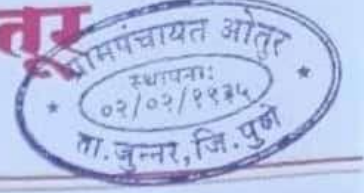 तूर
ग्रामपंचायत ओतूर
स्थापना:
०२/०२/१९३५
* *
ता. जुन्नर, जि. पुणे